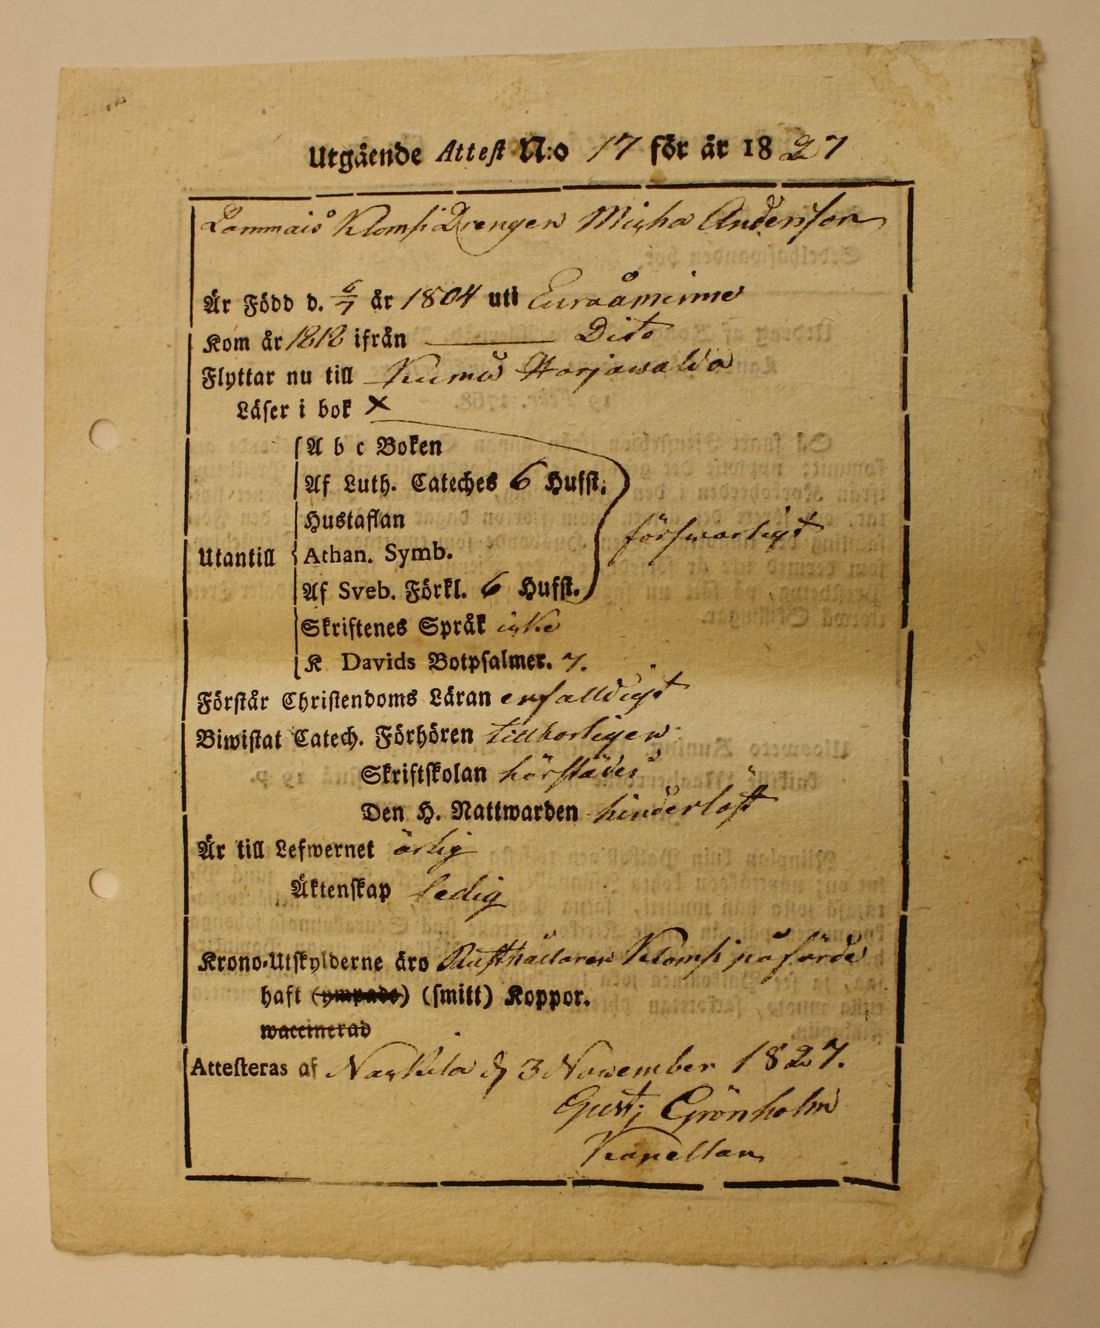 Utgående Attest N:o 17 för år 1827
Lammais Klomsi Drengen Micha Andersson
Är Född d. 6/7 år 1804 uti Euraåminne
Kom år 1818 ifrån Dito
Flyttar nu till Kumo Harjawalda
Läser i bok x
A b c Boken
Af Luth. Cateches 6 Hufst.
Hustaflan
Utantill Athan. Symb. förswarligt
Af Sveb. Förkl. 6 Hufst.
Skriftenes Språk icke
K Davids Botpsalmer. 7.
Förstår Christendoms Läran enfalldigt
Biwistat Catech. Förhören tillborligen
Skriftskolan härstädes
Den H. Nattwarden hinderlöst
Är till Lefwernet ärlig
Äktenskap ledig
Krono-Utskylderne äro Rusthållaren Klomsi påförde
haft (ympade) (smitt) Koppor.
waccinerad
Attesteras af Nackila d 3 November 1827.
Gust: Grönholm
Kapellan